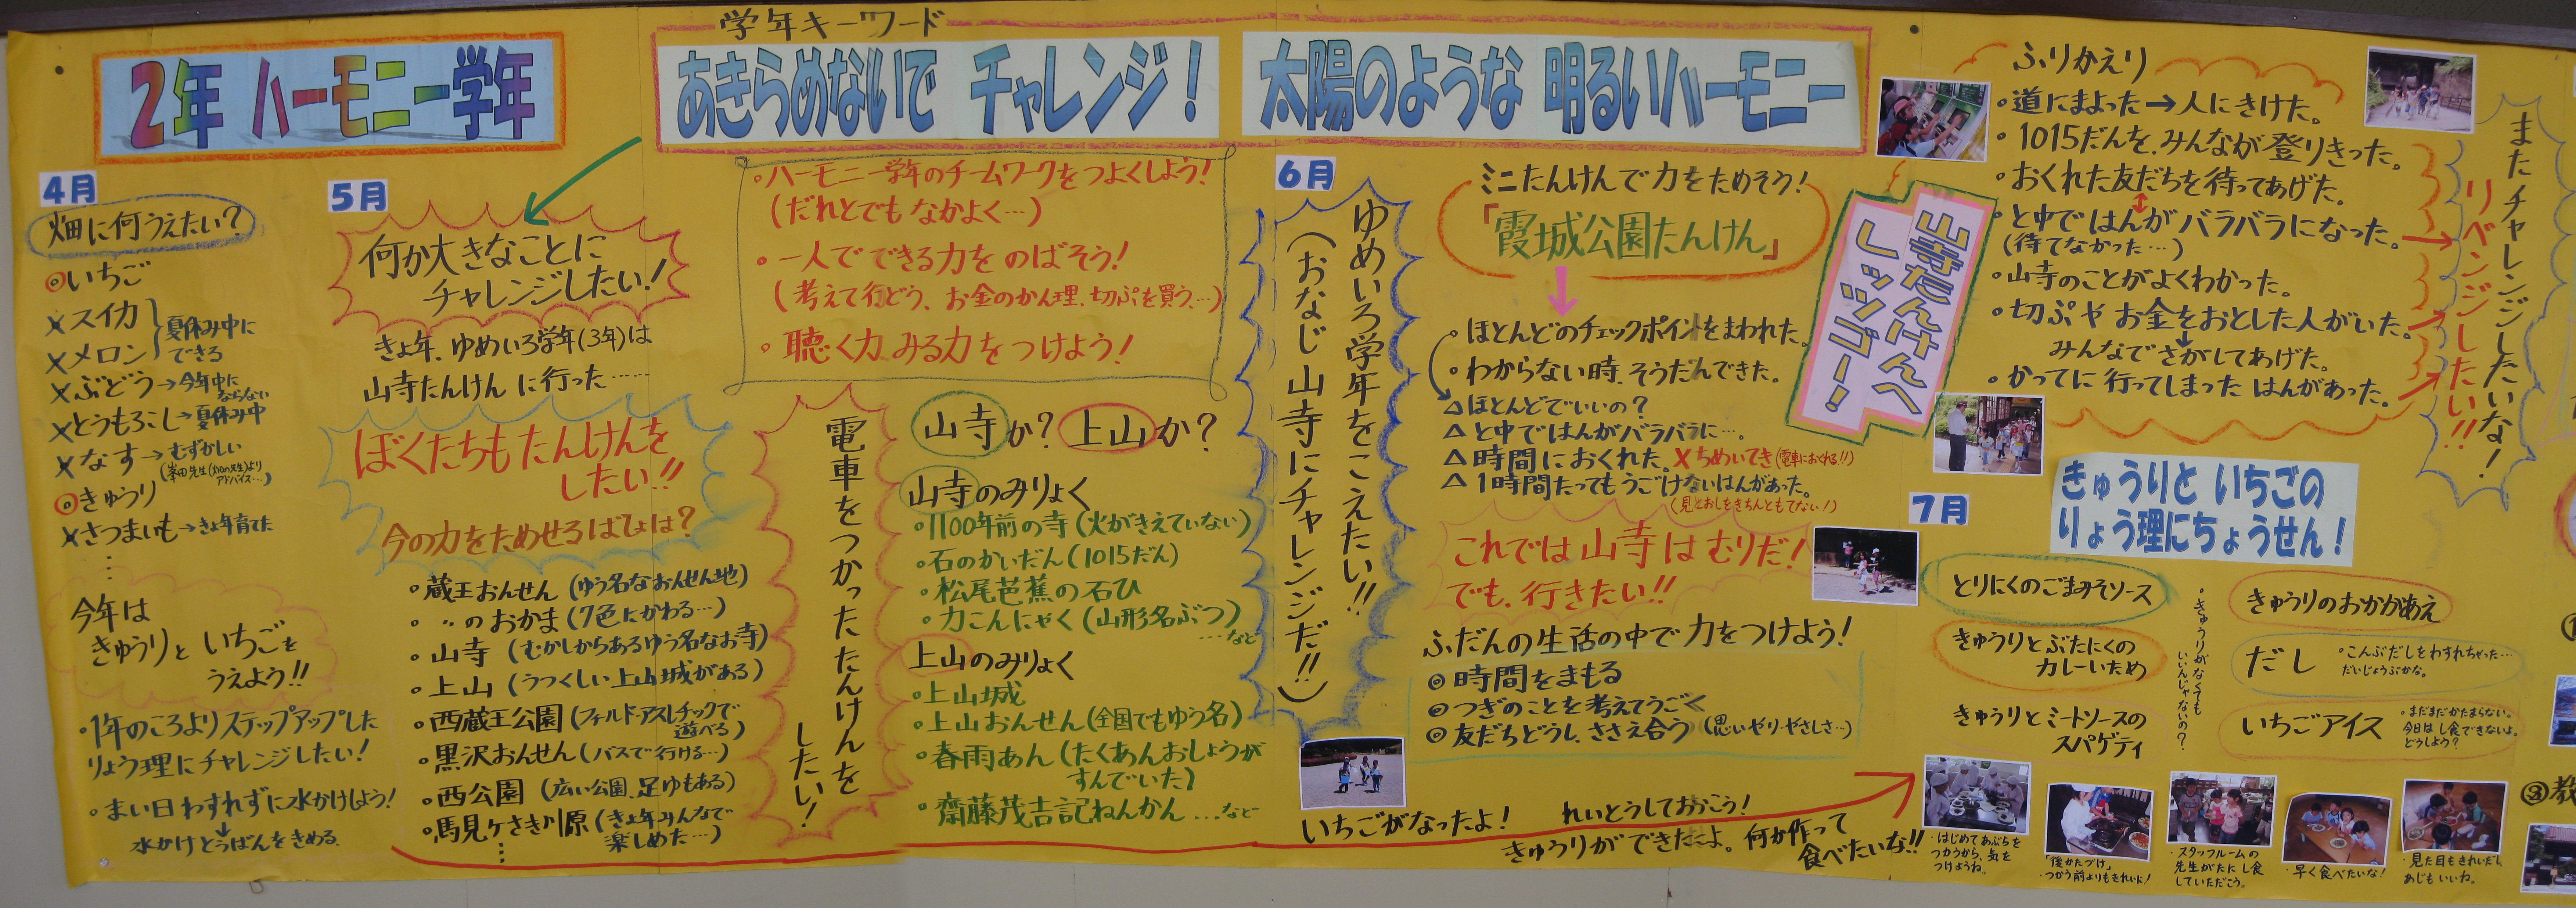 学年キーワード
2年 ハーモニー学年
あきらめないで チャレンジ!
太陽のような 明るいハーモニー
4月
畑に何うえたい?
◎いちご
×スイカ
×メロン
夏休み中に
できる
×ぶどう→今年中に
ならない
×とうもろこし→夏休み中
×なす→むずかしい
アドバイス…)
◎きゅうり
×さつまいも→きょ年育てた
今年は
きゅうりと いちごを
うえよう!!
・1年のころよりステップアップした
りょう理にチャレンジしたい!
・まい日わすれずに水かけしよう!
↓
水かけとうばんをきめる。
5月
何か大きなことに
チャレンジしたい!
きょ年、ゆめいろ学年(3年)は
山寺たんけん に行った……
ぼくたちもたんけんを
したい!!
今の力をためせるばしょは?
・蔵王おんせん (ゆう名なおんせん地)
・ 〃 のおかま (7色にかわる…)
・山寺 (むかしからあるゆう名なお寺)
・上山 (うつくしい上山城がある)
・西蔵王公園 (フィルド・アスレチックで
遊べる)
・黒沢おんせん (バスで行ける…)
・西公園 (広い公園、足ゆもある)
・馬見ヶさき川原 (きょ年みんなで
楽しめた…)
・ハーモニー学年のチームワークをつよくしよう!
(だれとでも なかよく…)
・一人で できる力を のばそう!
(考えて行どう、お金のかん理、切ぷを買う…)
・聴く力、みる力をつけよう!
電車をつかったたんけんを
したい!
山寺か? 上山か?
山寺のみりょく
・1100年前の寺 (火がきえていない)
・石のかいだん (1015だん)
・松尾芭蕉の石ひ
・力こんにゃく (山形名ぶつ)
…など
上山のみりょく
・上山城
・上山おんせん (全国でもゆう名)
・春雨あん (たくあんおしょうが
すんでいた)
・齋藤茂吉記ねんかん …など
6月
ゆめいろ学年をこえたい!!
(おなじ山寺にチャレンジだ!!)
ミニたんけんで力をためそう!
「霞城公園たんけん」
・ほとんどのチェックポイントをまわれた。
・わからない時、そうだんできた。
△ほとんどでいいの?
△と中ではんがバラバラに…。
△時間におくれた。×ちめいてき(電車におくれる!!)
△1時間たってもうごけないはんがあった。
(見とおしをきちんともてない!)
これでは山寺はむりだ!
でも、行きたい!!
ふだんの生活の中で力をつけよう!
◎時間をまもる
◎つぎのことを考えてうごく
◎友だちどうし、ささえ合う (思いやり・やさしさ…)
いちごがなったよ!
れいとうしておこう!
きゅうりができたよ。何か作って
食べたいな!!
山寺たんけんへ
レッツゴー!
ふりかえり
・道にまよった→人にきけた。
・1015だんを、みんなが登りきった。
・おくれた友だちを待ってあげた。
・と中ではんがバラバラになった。
(待てなかった…)
・山寺のことがよくわかった。
・切ぷや お金をおとした人がいた。
みんなでさがしてあげた。
・かってに行ってしまった はんがあった。
またチャレンジしたいな!
リベンジしたい!!
7月
きゅうりと いちごの
りょう理にちょうせん!
とりにくのごまみそソース
きゅうりとぶたにくの
カレーいため
きゅうりとミートソースの
スパゲティ
・きゅうりがなくても
いいんじゃないの?
きゅうりのおかかあえ
だし
・こんぶだしをわすれちゃった…
だいじょうぶかな。
いちごアイス
・まだまだかたまらない。
今日はし食できないよ。
どうしよう?
・はじめてあぶらを
つかうから、気を
つけようね。
「後かたづけ」
・つかう前よりもきれいに!
・スタッフルームの
先生がたにし食
していただこう。
・早く食べたいな!
・見た目もきれいだし
あじもいいね。
③教